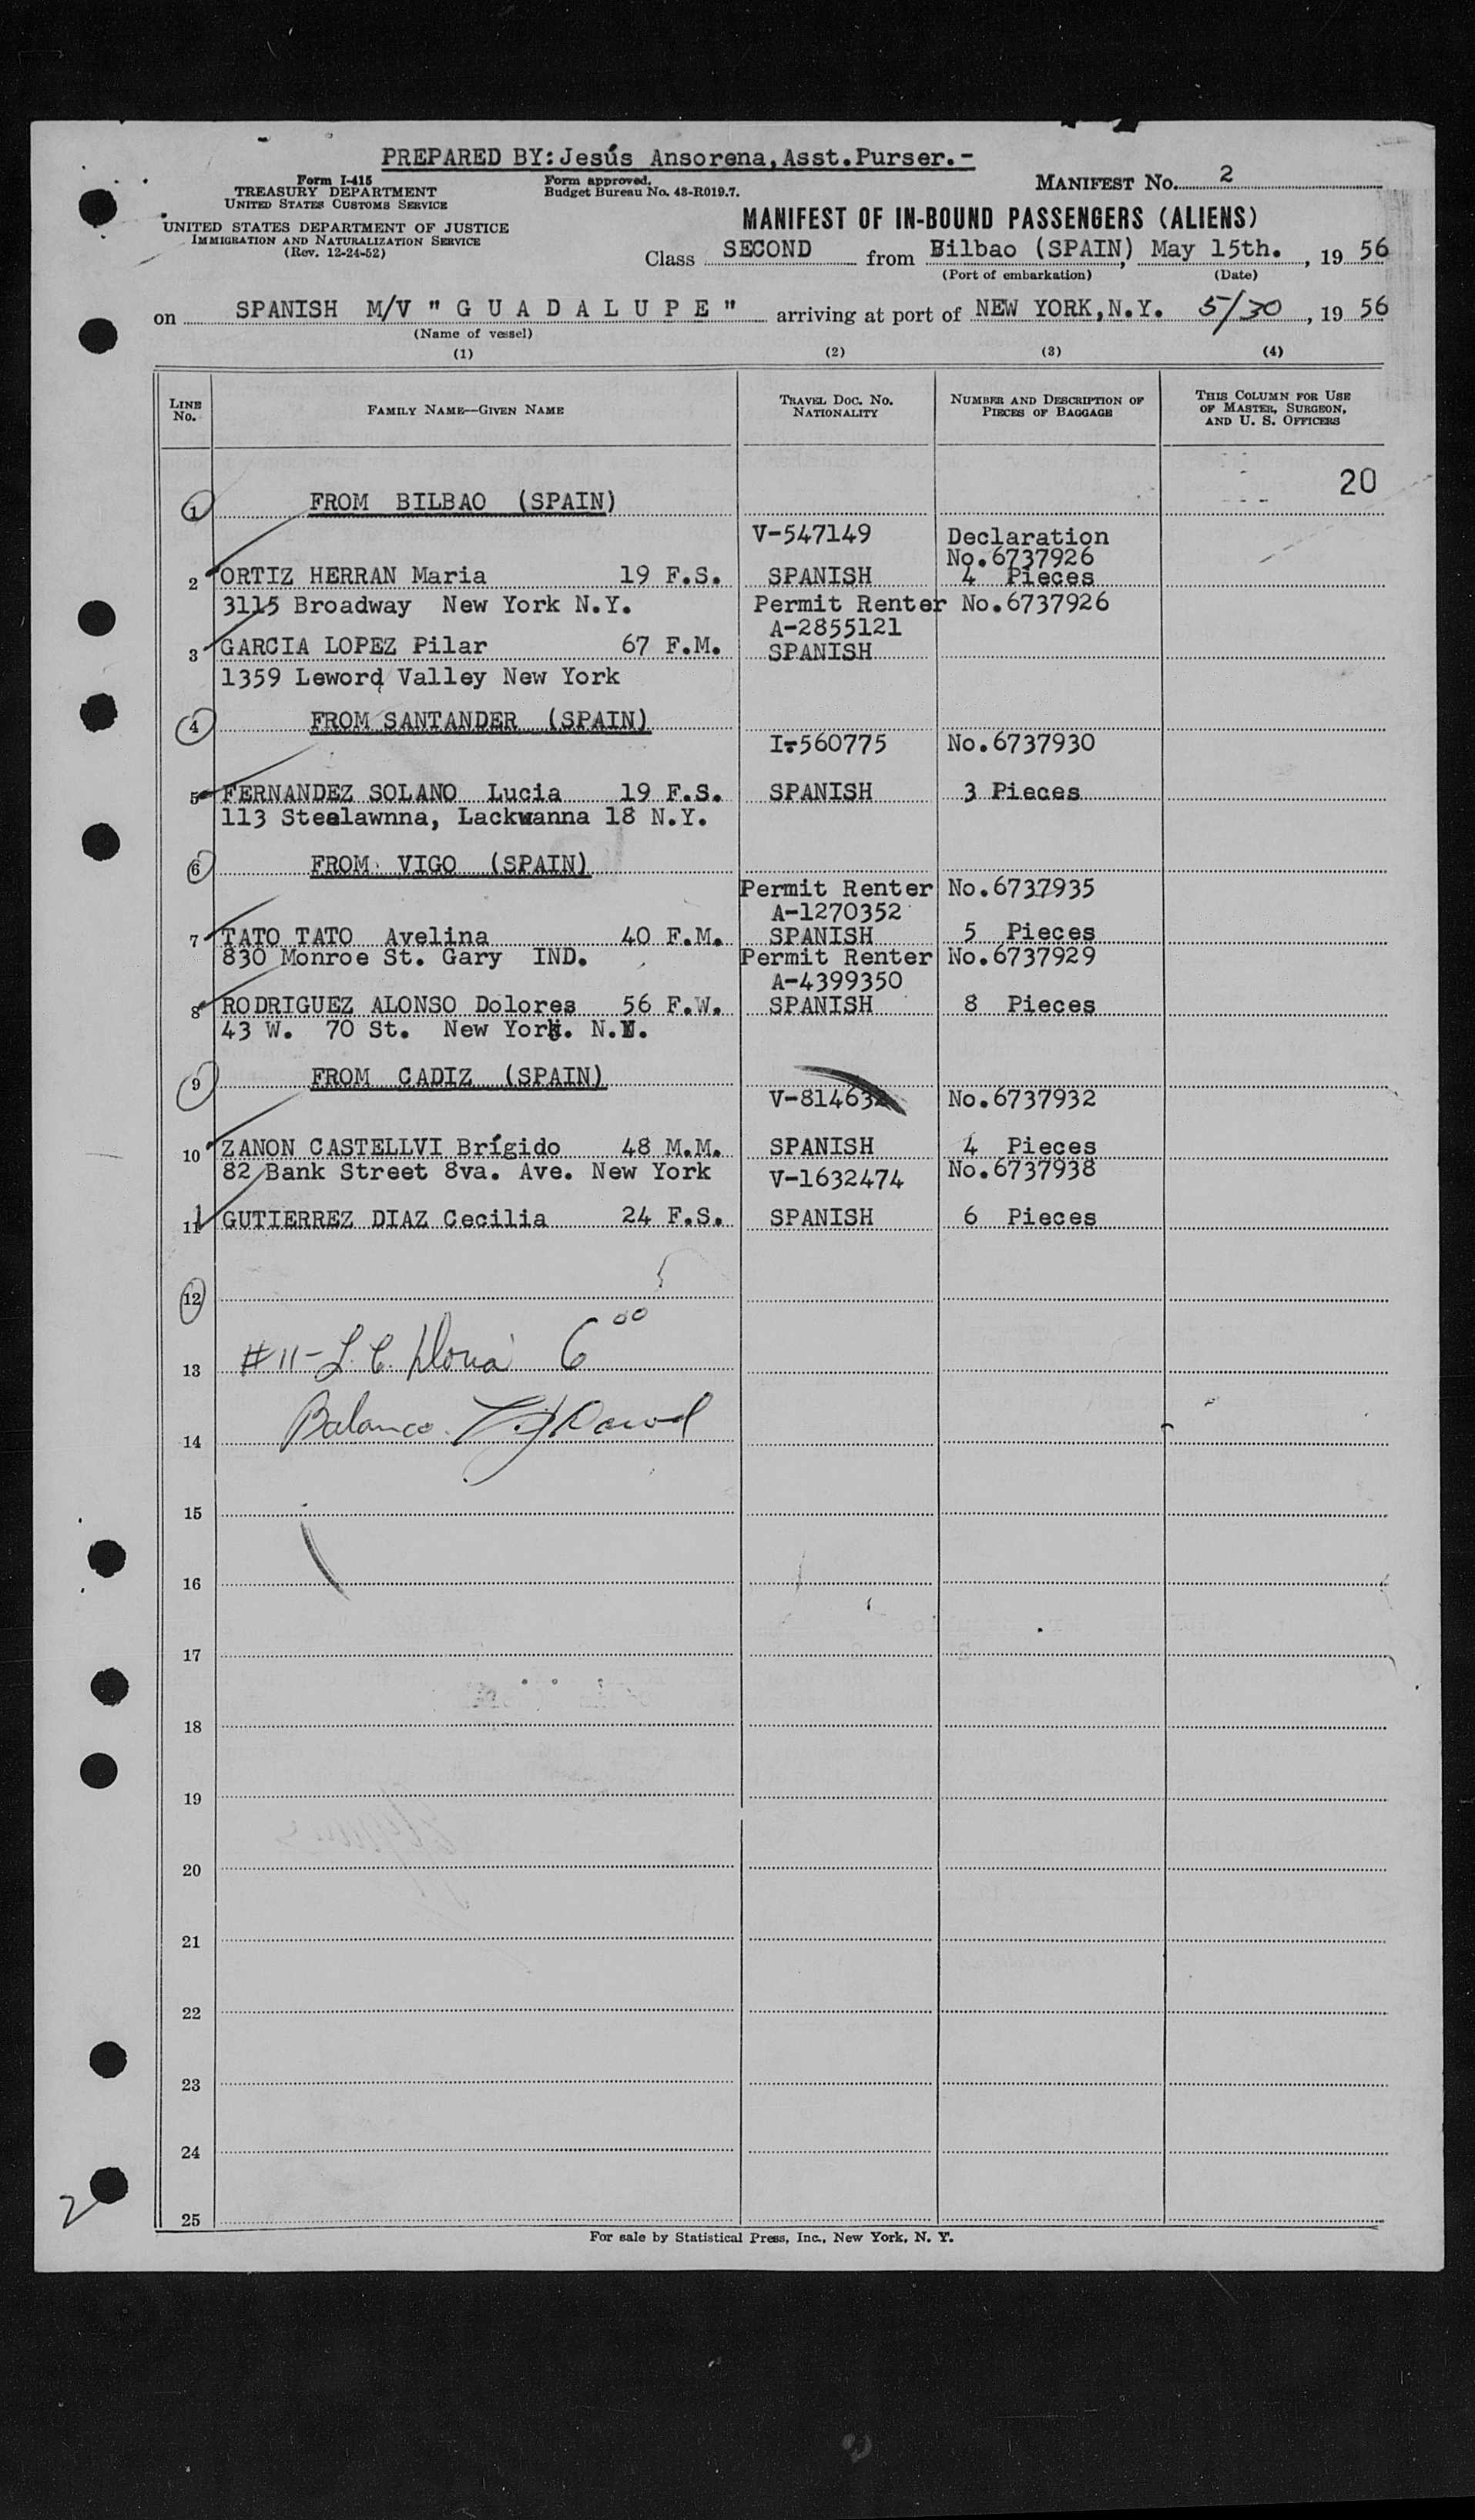 PREPARED BY: Jesús Ansorena, Asst. Purser.-
Form I-415
TREASURY DEPARTMENT
UNITED STATES CUSTOMS SERVICE
UNITED STATES DEPARTMENT OF JUSTICE
IMMIGRATION AND NATURALIZATION SERVICE
(Rev. 12-24-52)
Form approved.
Budget Bureau No. 43-R019.7.
MANIFEST NO. 2
MANIFEST OF IN-BOUND PASSENGERS (ALIENS)
Class SECOND from Bilbao (SPAIN), May 15th. , 19 56
(Port of embarkation) (Date)
on SPANISH M/V " G U A D A L U P E " arriving at port of NEW YORK, N.Y. 5/30 , 19 56
(Name of vessel)
(1) (2) (3) (4)
LINE No. FAMILY NAME—GIVEN NAME TRAVEL DOC. NO. NATIONALITY NUMBER AND DESCRIPTION OF PIECES OF BAGGAGE THIS COLUMN FOR USE OF MASTER, SURGEON, AND U. S. OFFICERS
20
1 FROM BILBAO (SPAIN)
V-547149 Declaration
No.6737926
2 ORTIZ HERRAN Maria 19 F.S. SPANISH 4 Pieces
3115 Broadway New York N.Y. Permit Renter No.6737926
A-2855121
3 GARCIA LOPEZ Pilar 67 F.M. SPANISH
1359 Leword Valley New York
4 FROM SANTANDER (SPAIN)
I-560775 No.6737930
5 FERNANDEZ SOLANO Lucia 19 F.S. SPANISH 3 Pieces
113 Steelawnna, Lackwanna 18 N.Y.
6 FROM VIGO (SPAIN)
Permit Renter No.6737935
A-1270352
7 TATO TATO Avelina 40 F.M. SPANISH 5 Pieces
830 Monroe St. Gary IND. Permit Renter No.6737929
A-4399350
8 RODRIGUEZ ALONSO Dolores 56 F.W. SPANISH 8 Pieces
43 W. 70 St. New York. N.Y.
9 FROM CADIZ (SPAIN)
V-81463 No.6737932
10 ZANON CASTELLVI Brígido 48 M.M. SPANISH 4 Pieces
82 Bank Street 8va. Ave. New York V-1632474 No.6737938
11 GUTIERREZ DIAZ Cecilia 24 F.S. SPANISH 6 Pieces
12
13 #11- L. C. 6 00
14 Balance
15
16
17
18
19
20
21
22
23
24
25
2
For sale by Statistical Press, Inc., New York, N. Y.